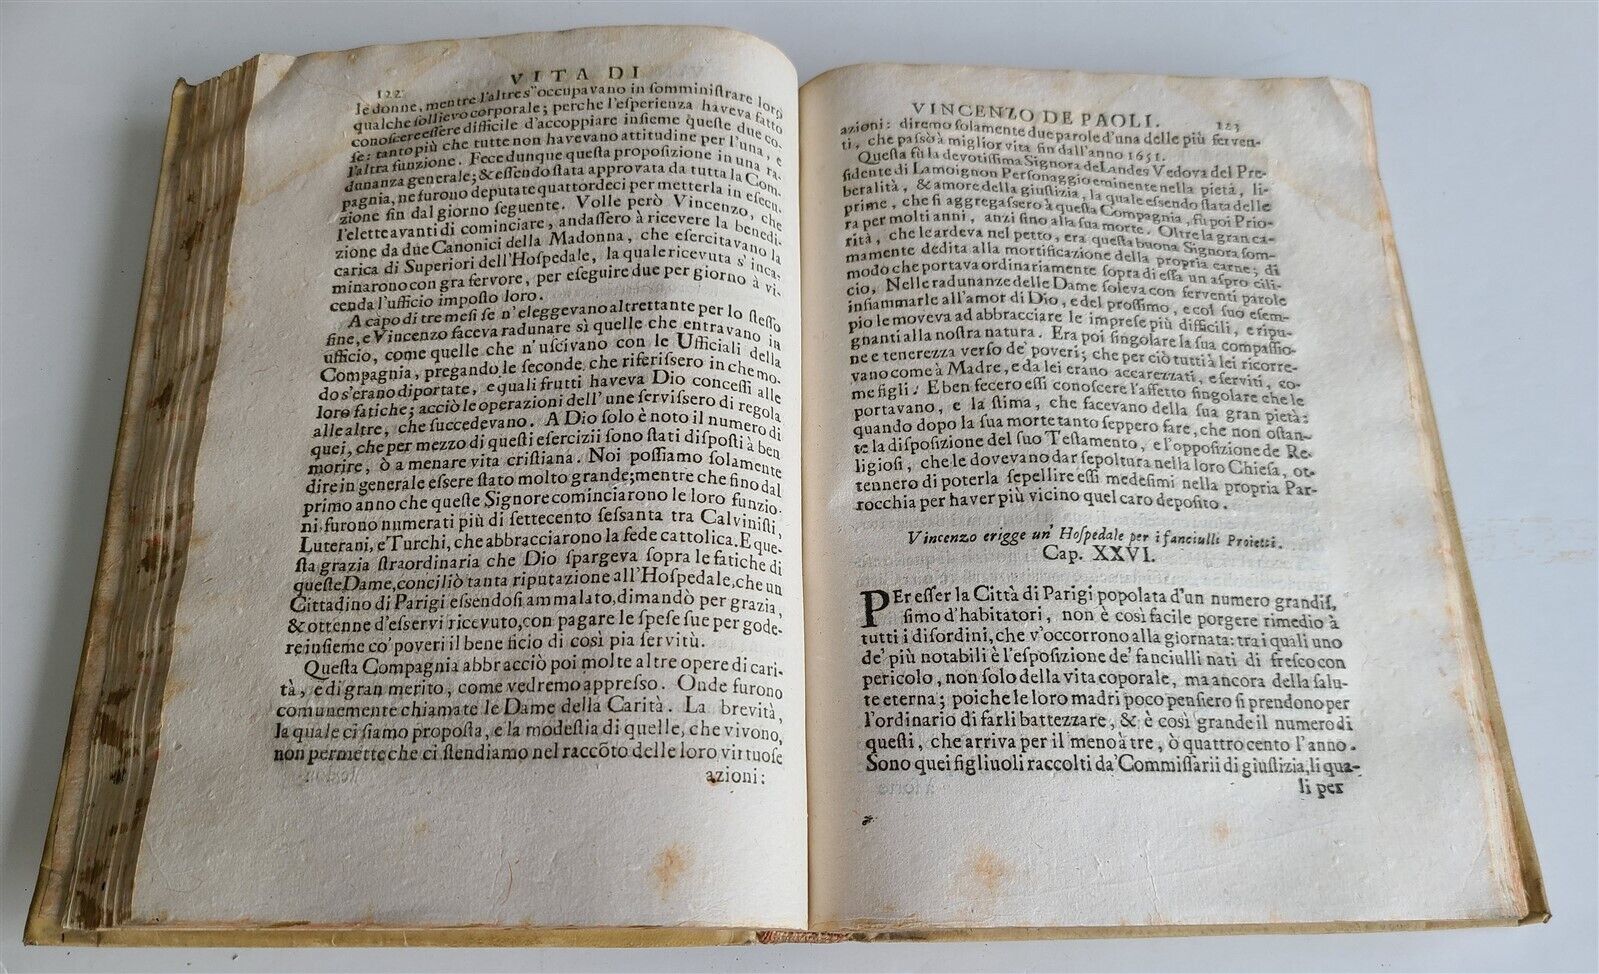 122 VITA DI
le donne, mentre l'altre s'occupavano in somminiſtrare loro
qualche ſollievo corporale; perche l'eſperienza haveva fatto
conoſcere eſſere difficile d'accoppiare inſieme queſte due co-
ſe: tanto più che tutte non havevano attitudine per l'una, e
l'altra funzione. Fece dunque queſta propoſizione in una ra-
dunanza generale; & eſſendo ſtata approvata da tutta la Com-
pagnia, ne furono deputate quattordeci per metterla in eſecu-
zione fin dal giorno ſeguente. Volle però Vincenzo, che
l'elette avanti di cominciare, andaſſero à ricevere la benedi-
zione da due Canonici della Madonna, che eſercitavano la
carica di Superiori dell'Hoſpedale, la quale ricevuta s'inca-
minarono con gra fervore, per eſeguire due per giorno à vi-
cenda l'ufficio impoſto loro.
A capo di tre meſi ſe n'eleggevano altrettante per lo ſteſſo
fine, e Vincenzo faceva radunare sì quelle che entravano in
ufficio, come quelle che n'uſcivano con le Ufficiali della
Compagnia, pregando le ſeconde, che riferiſſero in che mo-
do s'erano diportate, e quali frutti haveva Dio conceſſi alle
loro fatiche; acciò le operazioni dell'une ſerviſſero di regola
alle altre, che ſuccedevano. A Dio ſolo è noto il numero di
quei, che per mezo di queſti eſercizii ſono ſtati diſpoſti à ben
morire, ò a menare vita criſtiana. Noi poſſiamo ſolamente
dire in generale eſſere ſtato molto grande; mentre che fino dal
primo anno che queſte Signore cominciarono le loro funzio-
ni, furono numerati più di ſettecento ſeſſanta tra Calviniſti,
Luterani, e Turchi, che abbracciarono la fede cattolica. E que-
ſta grazia ſtraordinaria che Dio ſpargeva ſopra le fatiche di
queſte Dame, conciliò tanta riputazione all'Hoſpedale, che un
Cittadino di Parigi eſſendoſi ammalato, dimandò per grazia,
& ottenne d'eſſervi ricevuto, con pagare le ſpeſe ſue per gode-
re inſieme co' poveri il beneficio di così pia ſervitù.
Queſta Compagnia abbracciò poi molte altre opere di cari-
tà, e di gran merito, come vedremo appreſſo. Onde furono
comunemente chiamate le Dame della Carità. La brevità,
la quale ci ſiamo propoſta, e la modeſtia di quelle, che vivono,
non permette che ci ſtendiamo nel raccõto delle loro virtuoſe
azioni:
VINCENZO DE PAOLI. 123
azioni: diremo ſolamente due parole d'una delle più ferven-
ti, che paſsò à miglior vita fin dall'anno 1651.
Queſta fù la devotiſſima Signora de Landes Vedova del Pre-
ſidente di Lamoignon Perſonaggio eminente nella pietà, li-
beralità, & amore della giuſtizia, la quale eſſendo ſtata delle
prime, che ſi aggregaſſero à queſta Compagnia, fù poi Prio-
ra per molti anni, anzi ſino alla ſua morte. Oltre la gran ca-
rità, che le ardeva nel petto, era queſta buona Signora ſom-
mamente dedita alla mortificazione della propria carne; di
modo che portava ordinariamente ſopra di eſſa un aſpro cili-
cio, Nelle radunanze delle Dame ſoleva con ferventi parole
inſiammarle all'amor di Dio, e del proſſimo, e col ſuo eſem-
pio le moveva ad abbracciare le impreſe più difficili, e ripu-
gnanti alla noſtra natura. Era poi ſingolare la ſua compaſſio-
ne e tenerezza verſo de' poveri; che per ciò tutti à lei ricorre-
vano come à Madre, e da lei erano accarezzati, e ſerviti, co-
me figli. E ben fecero eſſi conoſcere l'affetto ſingolare che le
portavano, e la ſtima, che facevano della ſua gran pietà:
quando dopo la ſua morte tanto ſeppero fare, che non oſtan-
te la diſpoſizione del ſuo Teſtamento, e l'oppoſizione de Re-
ligioſi, che le dovevano dar ſepoltura nella loro Chieſa, ot-
tennero di poterla ſepellire eſſi medeſimi nella propria Par-
rocchia per haver più vicino quel caro depoſito.
Vincenzo erigge un' Hoſpedale per i fanciulli Proietti.
Cap. XXVI.
PEr eſſer la Città di Parigi popolata d'un numero grandiſ-
ſimo d'habitatori, non è così facile porgere rimedio à
tutti i diſordini, che v'occorrono alla giornata: tra i quali uno
de' più notabili è l'eſpoſizione de' fanciulli nati di freſco con
pericolo, non ſolo della vita coporale, ma ancora della ſalu-
te eterna; poiche le loro madri poco penſiero ſi prendono per
l'ordinario di farli battezzare, & è così grande il numero di
queſti, che arriva per il meno à tre, ò quattro cento l'anno.
Sono quei figliuoli raccolti da' Commiſſarii di giuſtizia, li qua-
li per